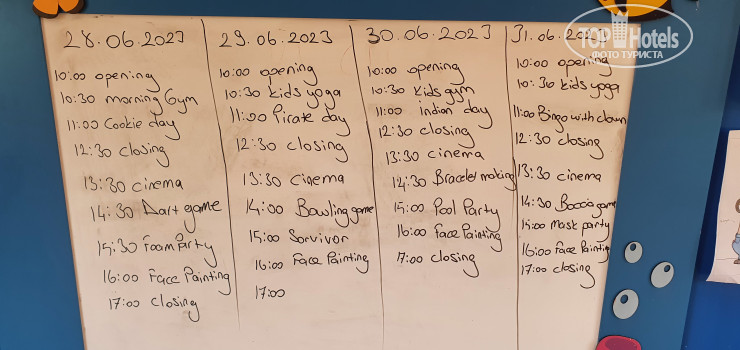 28.06.2023
10:00 opening
10:30 morning Gym
11:00 Cookie day
12:30 closing
13:30 cinema
14:30 Dart game
15:30 Foam Party
16:00 Face Painting
17:00 closing
29.06.2023
10:00 opening
10:30 kids yoga
11:00 Pirate day
12:30 closing
13:30 Cinema
14:00 Bowling game
15:00 Sorvivor
16:00 Face Painting
17:00
30.06.2023
10:00 opening
10:30 kids gym
11:00 indian day
12:30 closing
13:30 cinema
14:30 Bracelet making
15:00 Pool Party
16:00 Face Painting
17:00 closing
31.06.2023
10:00 opening
10:30 kids yoga
11:00 Bingo with clown
12:30 closing
13:30 cinema
14:30 Boccia game
15:00 Mask party
16:00 Face Painting
17:00 closing
TOP Hotels
ФОТО ТУРИСТА